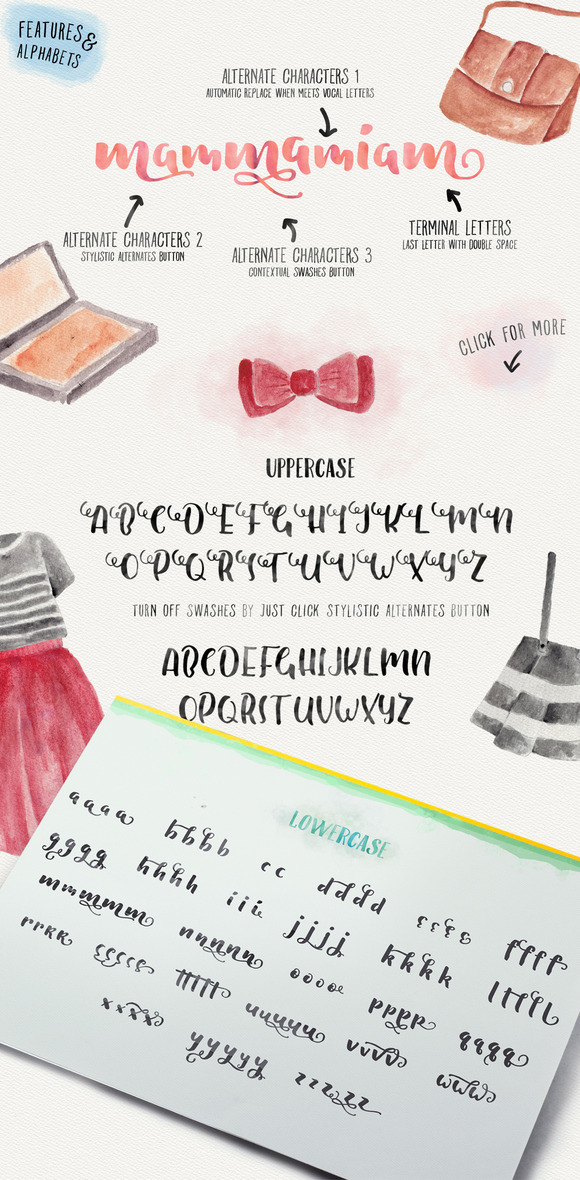 FEATURES &
ALPHABETS
ALTERNATE CHARACTERS 1
AUTOMATIC REPLACE WHEN MEETS VOCAL LETTERS
mammamiam
ALTERNATE CHARACTERS 2
STYLISTIC ALTERNATES BUTTON
ALTERNATE CHARACTERS 3
CONTEXTUAL SWASHES BUTTON
TERMINAL LETTERS
LAST LETTER WITH DOUBLE SPACE
CLICK FOR MORE
UPPERCASE
A B C D E F G H I J K L M N
O P Q R S T U V W X Y Z
TURN OFF SWASHES BY JUST CLICK STYLISTIC ALTERNATES BUTTON
ABCDEFGHIJKLMN
OPQRSTUVWXYZ
LOWERCASE
aaaa bbbb cc dddd εεεε ffff
gggg hhhh iii jjjj kkkk lllll
mmmmmm nnnnn oooo pppp qqqq
rrrr sssss ttttt uuuuu vvvv www
xxxx yyyyy zzzzz